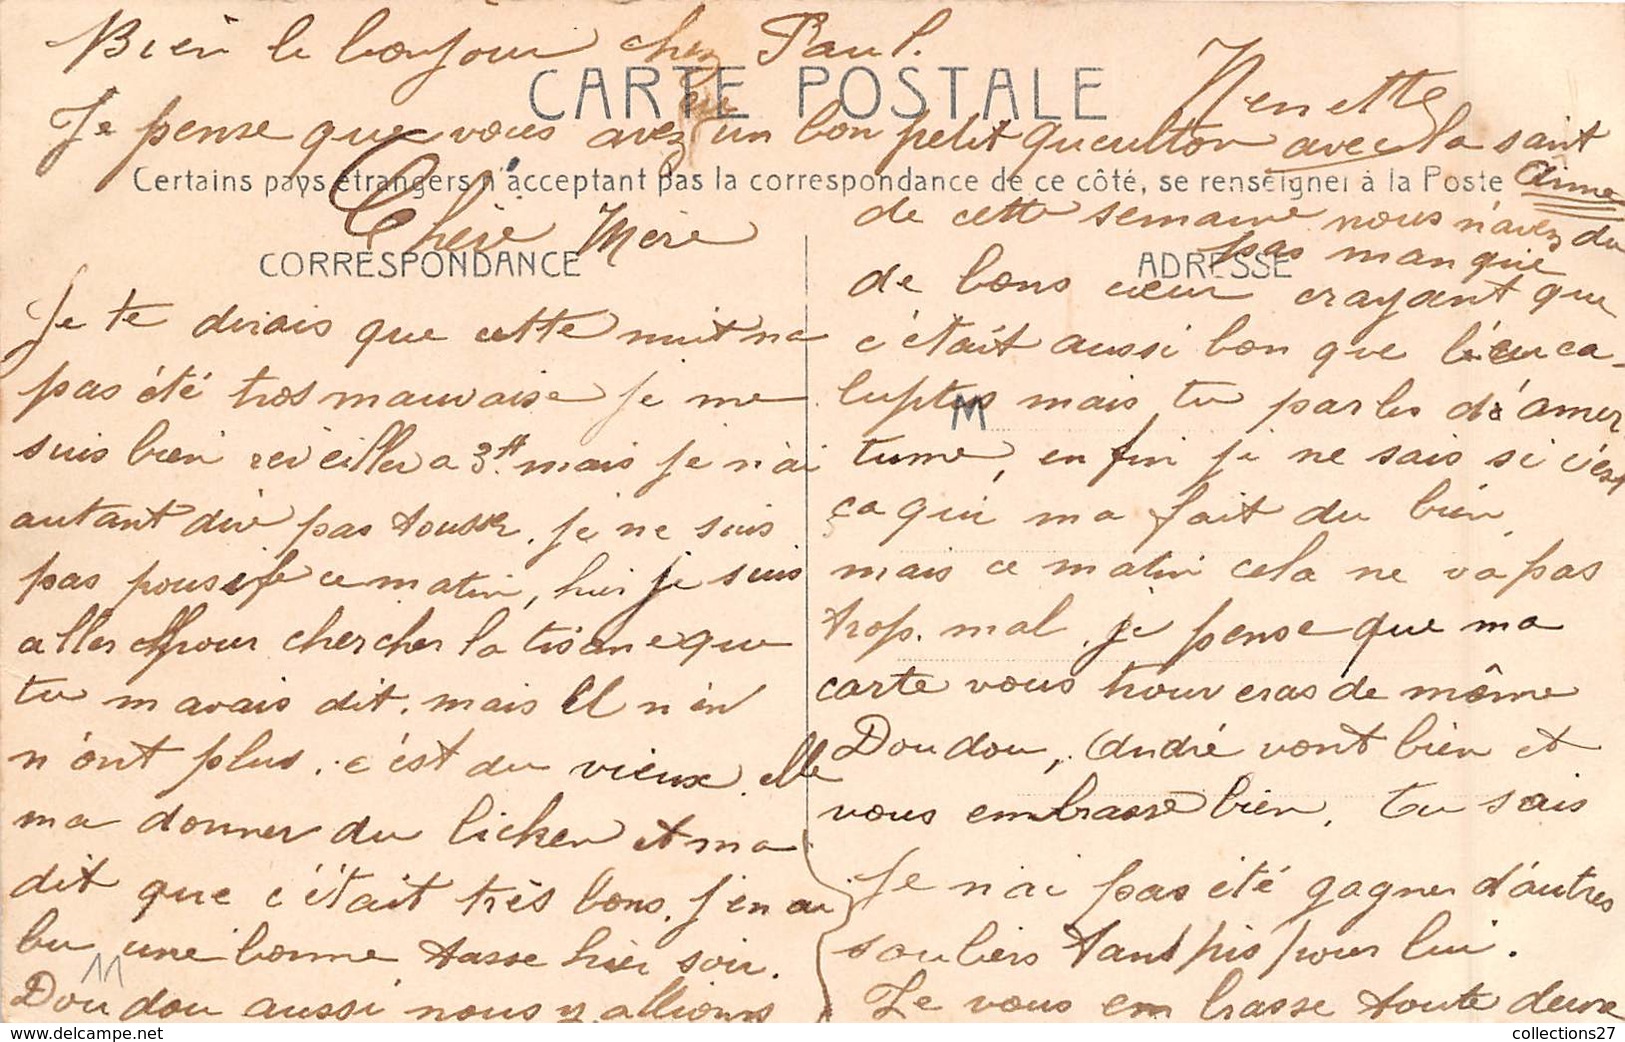 Bien le bonjour chez Paul.
CARTE POSTALE
Nenette
Je pense que vous avez eu un bon petit gueulton avec la saint Aime
Certains pays étrangers n'acceptant pas la correspondance de ce côté, se renseigner à la Poste
Chère Mère
CORRESPONDANCE
Je te dirais que cette nuit na
pas été tros mauvaise je me
suis bien reveiller a 3H. mais je n'ai
autant dire pas tousser. je ne suis
pas pousife ce matin, hier je suis
aller pour chercher la tisane que
tu m avais dit. mais il n'en
n'ont plus. c'est du vieux. elle
ma donner du licken et ma
dit que c'était très bons. j'en ai
bu une bonne tasse hier soir.
Doudou aussi nous y allions
11
de cette semaine nous n'avez du
pas manque
ADRESSE
de bons cœur crayant que
c'était aussi bon que l'euca-
luptus mais tu parles d'amer
M
tume, enfin je ne sais si c'est
ça qui ma fait du bien,
mais ce matin cela ne va pas
trop. mal. je pense que ma
carte vous trouveras de même
Doudou, André vont bien et
vous embrasse bien. tu sais
Je n'ai pas été gagner d'autres
souliers tant pis pour lui.
Je vous embrasse toute deux
collections27